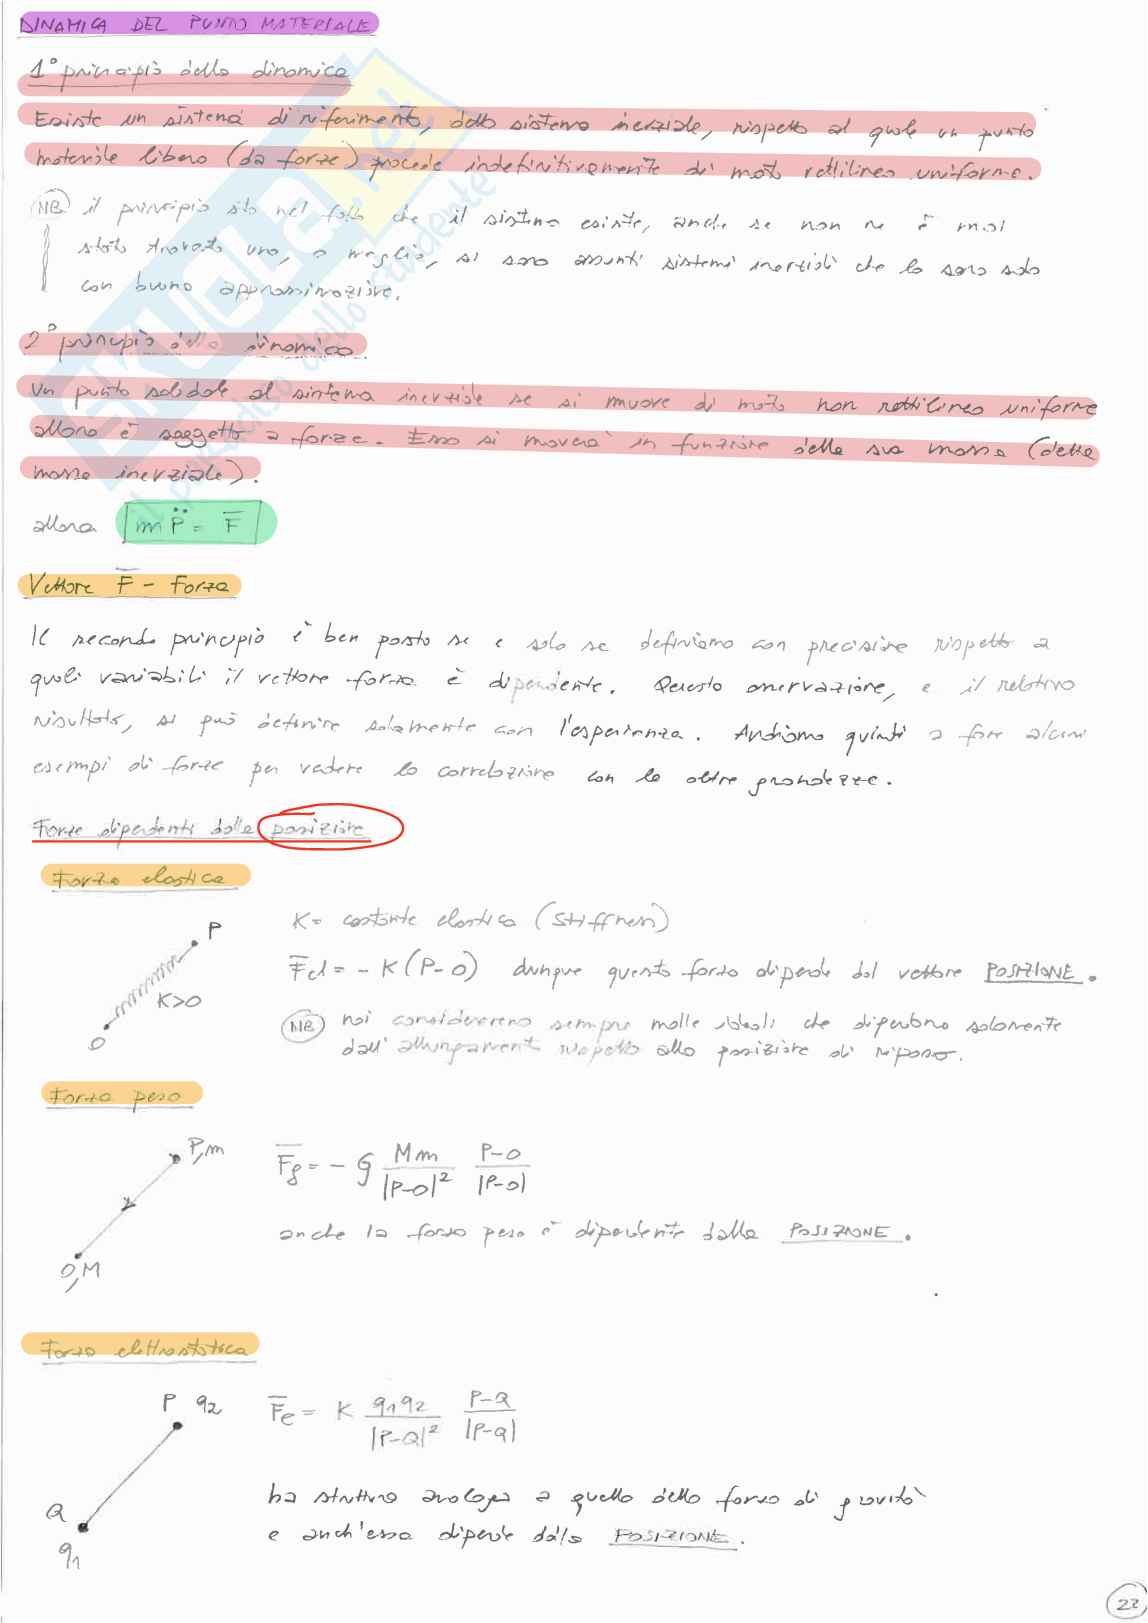 DINAMICA DEL PUNTO MATERIALE
1° principio della dinamica
Esiste un sistema di riferimento, detto sistema inerziale, rispetto al quale un punto
materiale libero (da forze) procede indefinitivamente di moto rettilineo uniforme.
NB il principio sta nel fatto che il sistema esiste, anche se non ne è mai
stato trovato uno, o meglio, si sono assunti sistemi inerziali che lo sono solo
con buona approssimazione.
2° principio della dinamica
Un punto solidale al sistema inerziale se si muove di moto non rettilineo uniforme
allora è soggetto a forze. Esso si moverà in funzione della sua massa (detta
massa inerziale).
allora m P̈ = F̅
Vettore F̅ - Forza
Il secondo principio è ben posto se e solo se definiamo con precisione rispetto a
quali variabili il vettore forza è dipendente. Questa osservazione, e il relativo
risultato, si può definire solamente con l'esperienza. Andiamo quindi a fare alcuni
esempi di forze per vedere la correlazione con le altre grandezze.
Forze dipendenti dalla posizione
Forza elastica
P
K>0
O
K= costante elastica (Stiffness)
F̅el = - K(P-O) dunque questa forza dipende dal vettore POSIZIONE.
NB noi considereremo sempre molle ideali che dipendono solamente
dall'allungamento rispetto alla posizione di riposo.
Forza peso
P,m
O,M
F̅g = - G Mm/|P-O|² P-O/|P-O|
anche la forza peso è dipendente dalla POSIZIONE.
Forza elettrostatica
P q2
Q
q1
F̅e = K q1q2/|P-Q|² P-Q/|P-Q|
ha struttura analoga a quella della forza di gravità
e anch'essa dipende dalla POSIZIONE.
22
SKUOLA.net
il paradiso dello studente